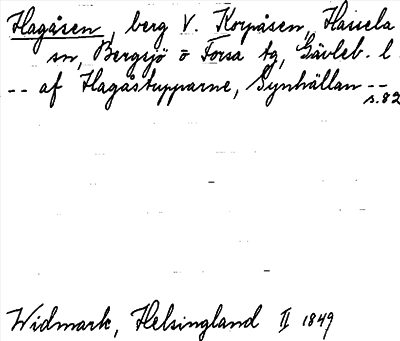 Hagåsen, berg V. Korpåsen, Hassela
sn, Bergsjö o Forsa tg, Gävleb. l.
-- af Hagåstupparne, Synhällan --
s. 82
Widmark, Helsingland II 1849